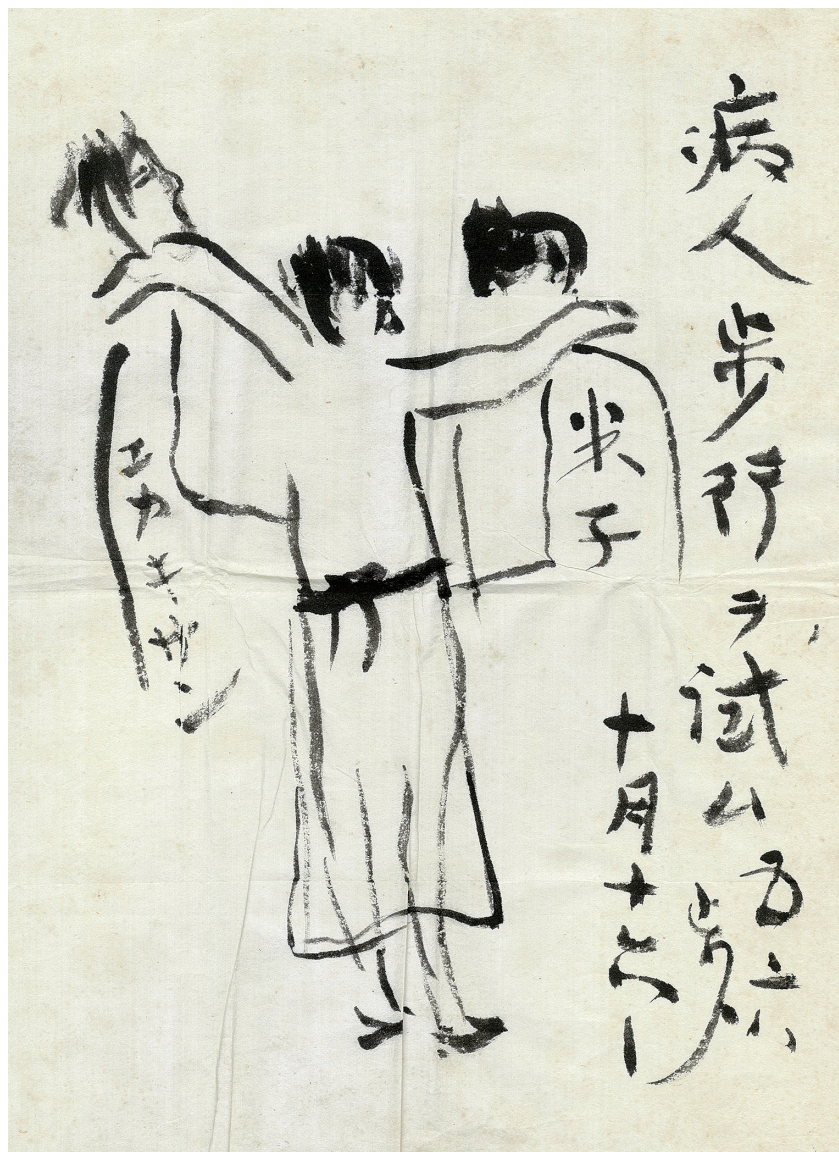 病人歩行ヲ試ム
五六歩
十月十六日
米子
エカキサン